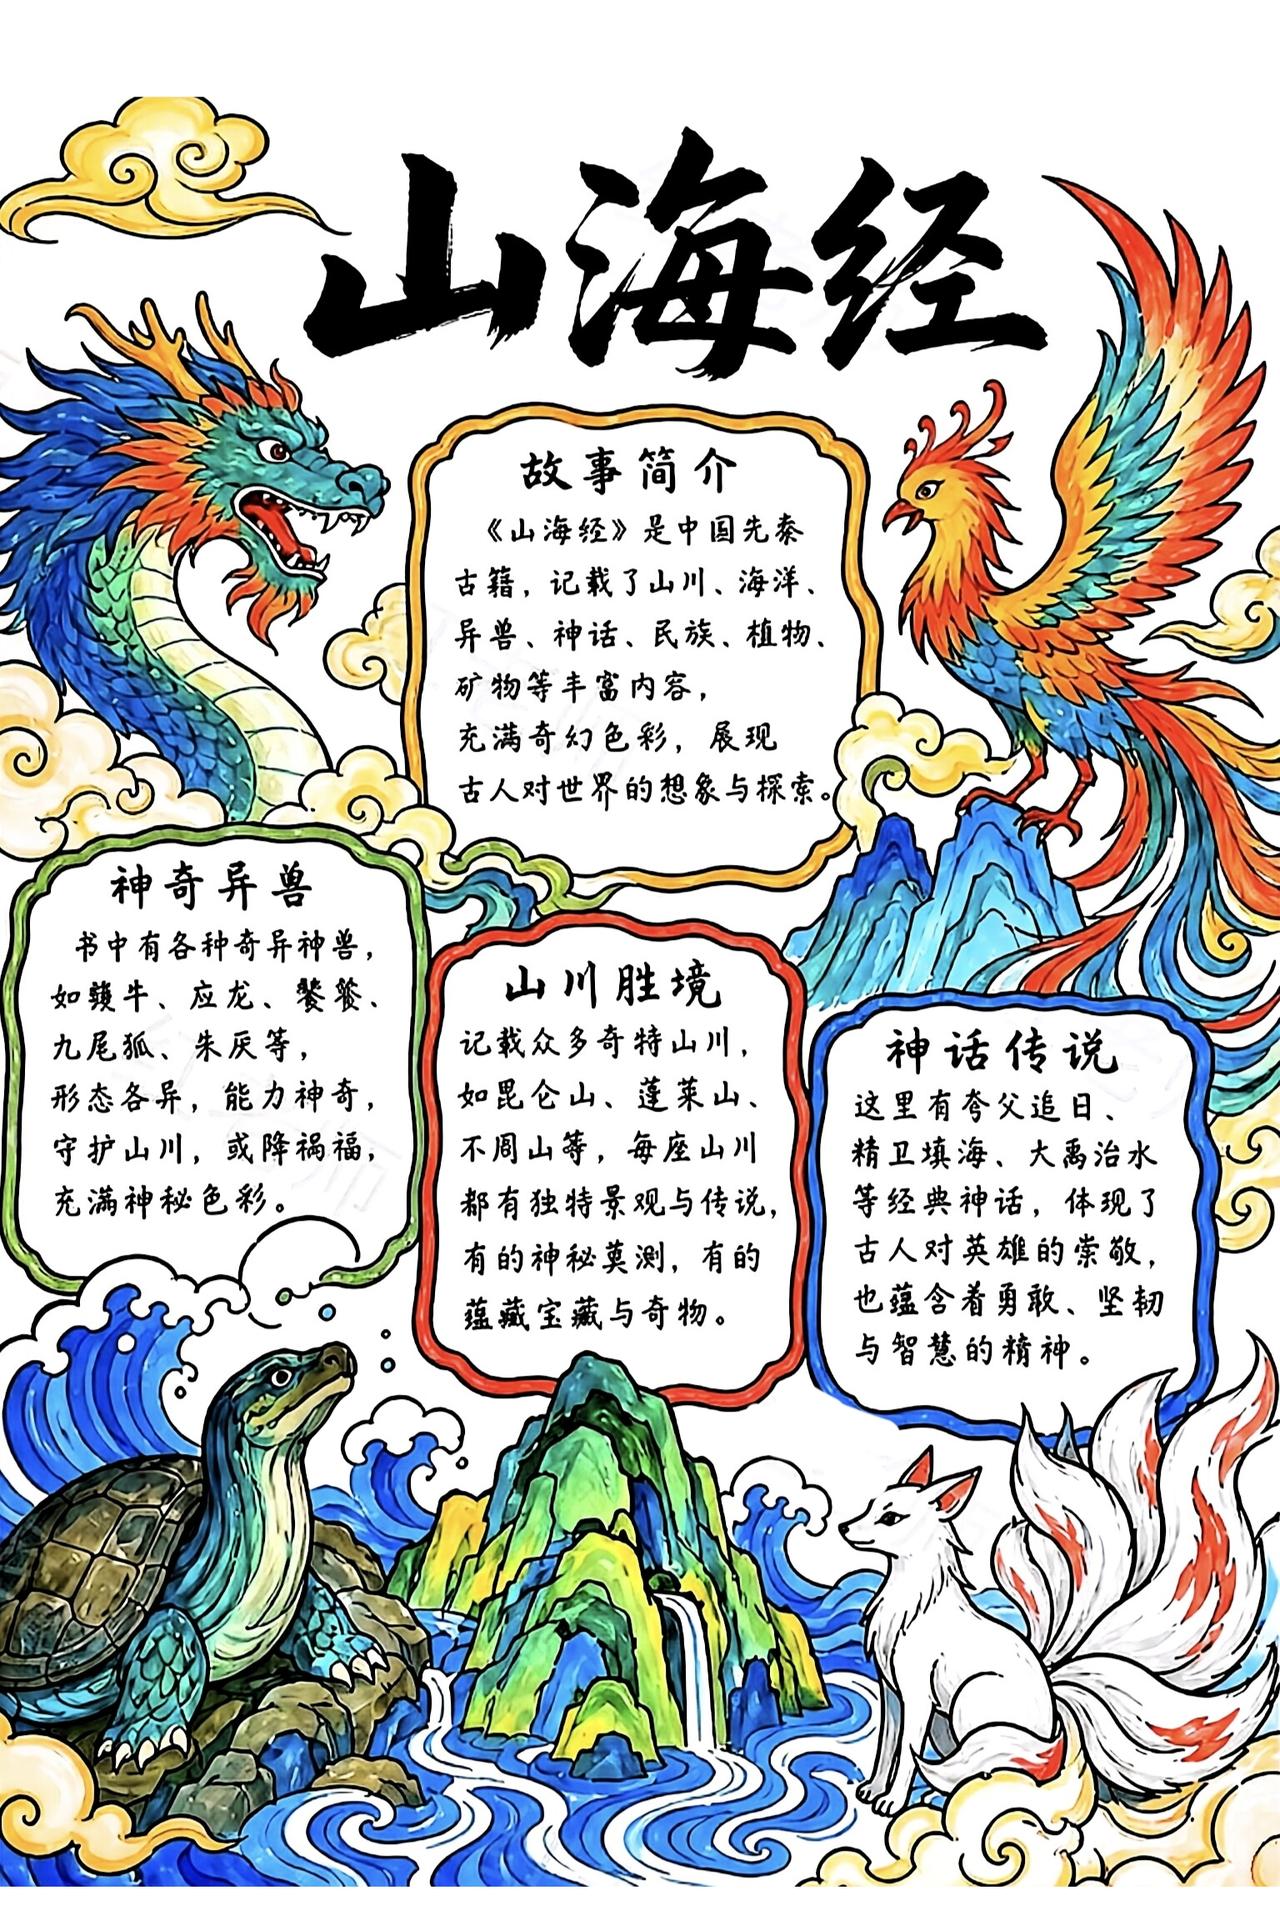 山海经
故事简介
《山海经》是中国先秦
古籍，记载了山川、海洋、
异兽、神话、民族、植物、
矿物等丰富内容，
充满奇幻色彩，展现
古人对世界的想象与探索。
神奇异兽
书中有各种奇异神兽，
如牛、应龙、饕餮、
九尾狐、朱厌等，
形态各异，能力神奇，
守护山川，或降祸福，
充满神秘色彩。
山川胜境
记载众多奇特山川，
如昆仑山、蓬莱山、
不周山等，每座山川
都有独特景观与传说，
有的神秘莫测，有的
蕴藏宝藏与奇物。
神话传说
这里有夸父追日、
精卫填海、大禹治水
等经典神话，体现了
古人对英雄的崇敬，
也蕴含着勇敢、坚韧
与智慧的精神。